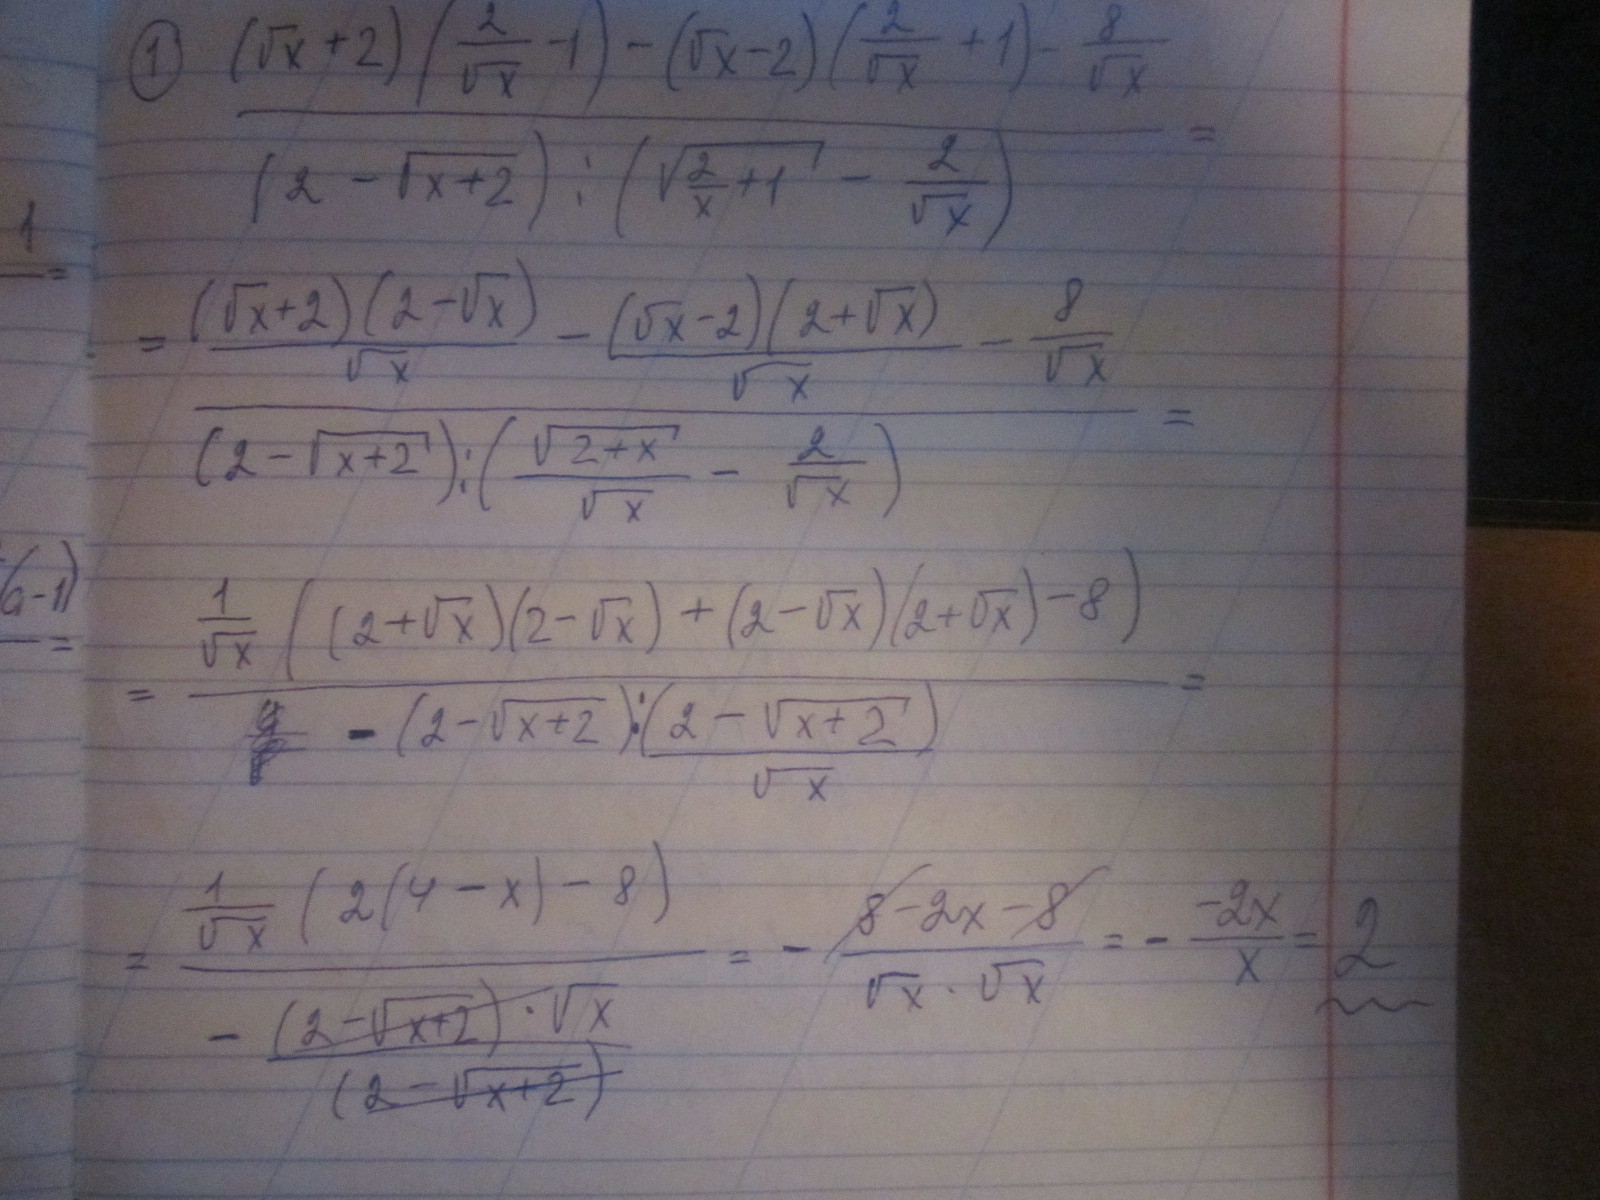 ① (√x + 2)(2/√x - 1) - (√x - 2)(2/√x + 1) - 8/√x
=
(2 - √(x+2)) : (√(2/x + 1) - 2/√x)
= (√x+2)(2-√x)/√x - (√x-2)(2+√x)/√x - 8/√x
=
(2 - √(x+2)) : (√(2+x)/√x - 2/√x)
1/√x ((2+√x)(2-√x) + (2-√x)(2+√x) - 8)
= =
- (2-√(x+2)) : (2 - √(x+2))/√x
1/√x (2(4-x) - 8)
= = - (8 - 2x - 8)/(√x · √x) = - (-2x)/x = 2
- (2-√(x+2)) · √x
(2-√(x+2))
1
=
(a-1)
=